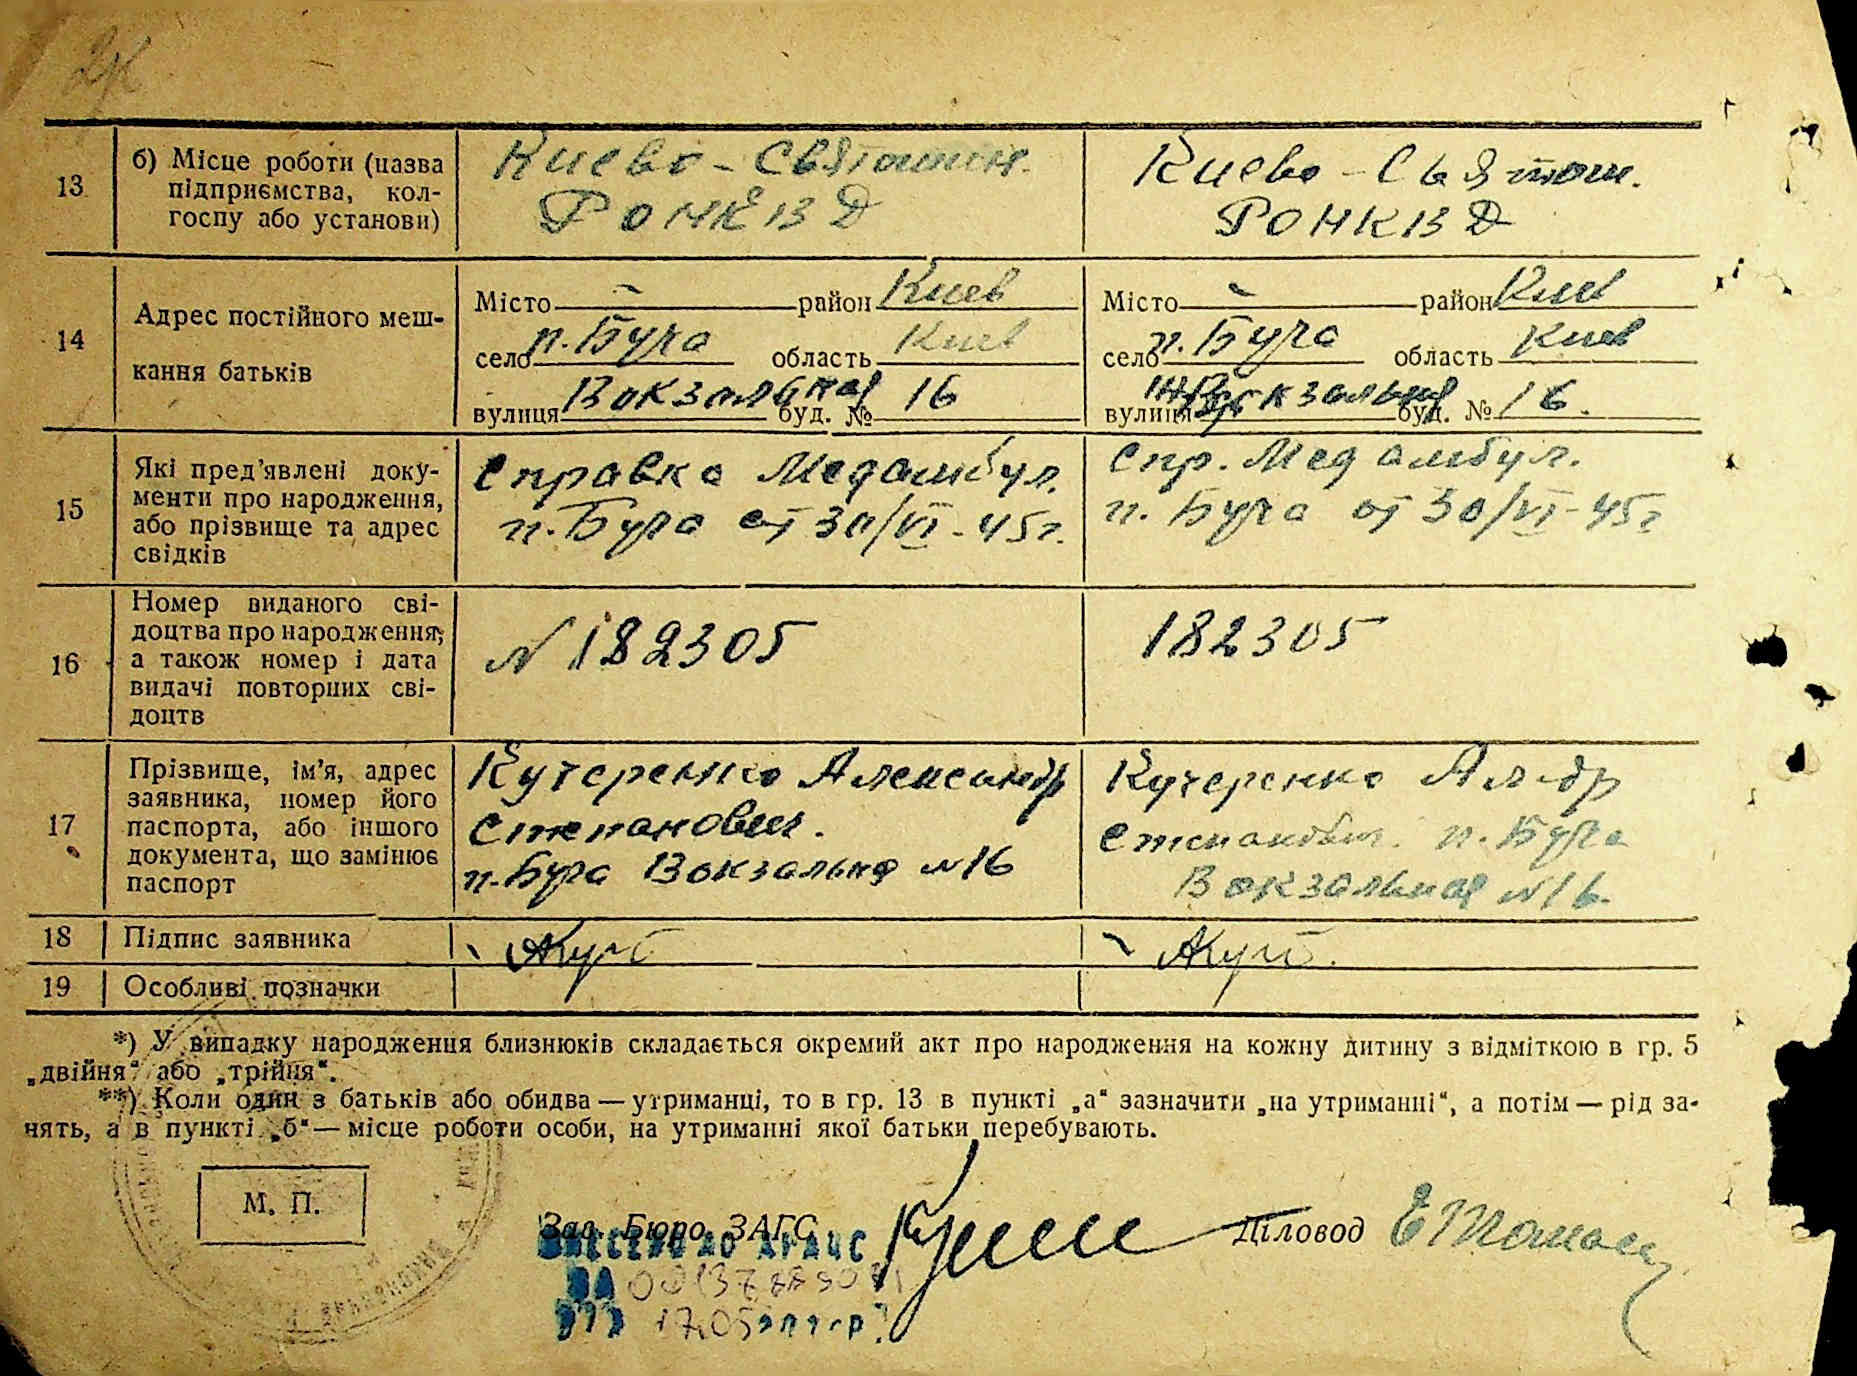 13
б) Місце роботи (назва
підприємства, кол-
госпу або установи)
Киево - Святошин.
РОНКВД
Киево - Святош.
РОНКВД
14
Адрес постійного меш-
кання батьків
Місто - район Киев
село п. Буча область Киев
вулиця Вокзальная буд. № 16
Місто - район Киев
село п. Буча область Киев
вулиця Вокзальная буд. № 16.
15
Які пред'явлені доку-
менти про народження,
або прізвище та адрес
свідків
Справка Медамбул.
п. Буча от 30/VI - 45 г.
Спр. Мед амбул.
п. Буча от 30/VI - 45 г
16
Номер виданого сві-
доцтва про народження,
а також номер і дата
видачі повторних сві-
доцтв
N 182305
182305
17
Прізвище, ім'я, адрес
заявника, номер його
паспорта, або іншого
документа, що замінює
паспорт
Кучеренко Александр
Степанович.
п. Буча Вокзальна N 16
Кучеренко Ал-др
Степанович. п. Буча
Вокзальная N 16.
18 Підпис заявника
19 Особливі позначки
*) У випадку народження близнюків складається окремий акт про народження на кожну дитину з відміткою в гр. 5
„двійня" або „трійня".
**) Коли один з батьків або обидва — утриманці, то в гр. 13 в пункті „а" зазначити „на утриманні", а потім — рід за-
нять, а в пункті „б" — місце роботи особи, на утриманні якої батьки перебувають.
М. П.
Зав. Бюро ЗАГС
Діловод
ВНЕСЕНО ДО ДРАЦС